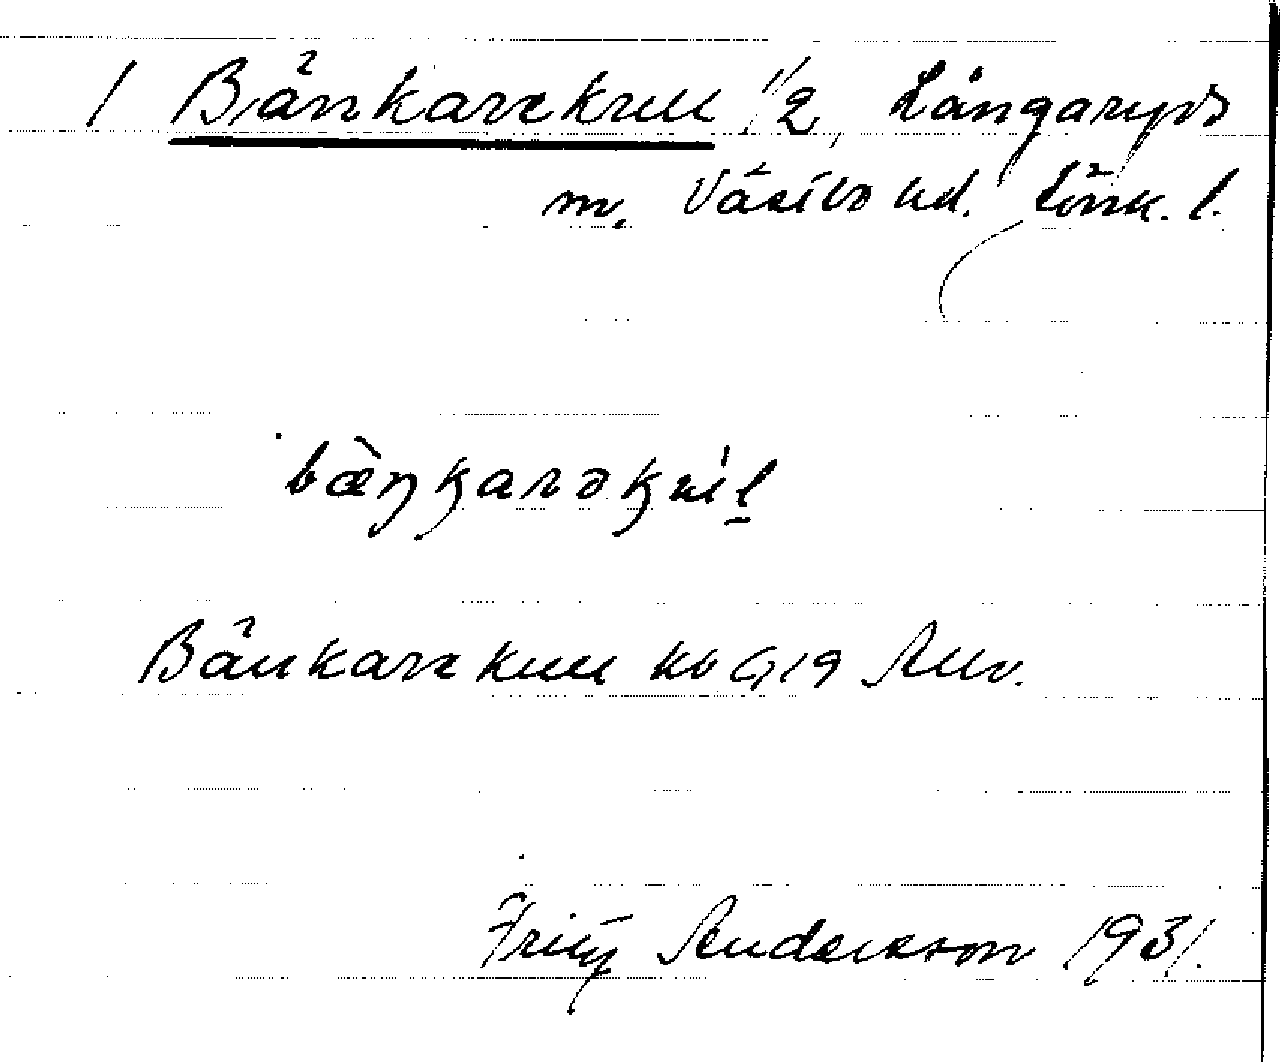 1 Bänkarekull 1/2, Långaryds
sn. Västbo hd. Jönk. l.
bæŋkarəkul
Bänkarekull kb G19 Allv.
Fritz Andersson 1931.